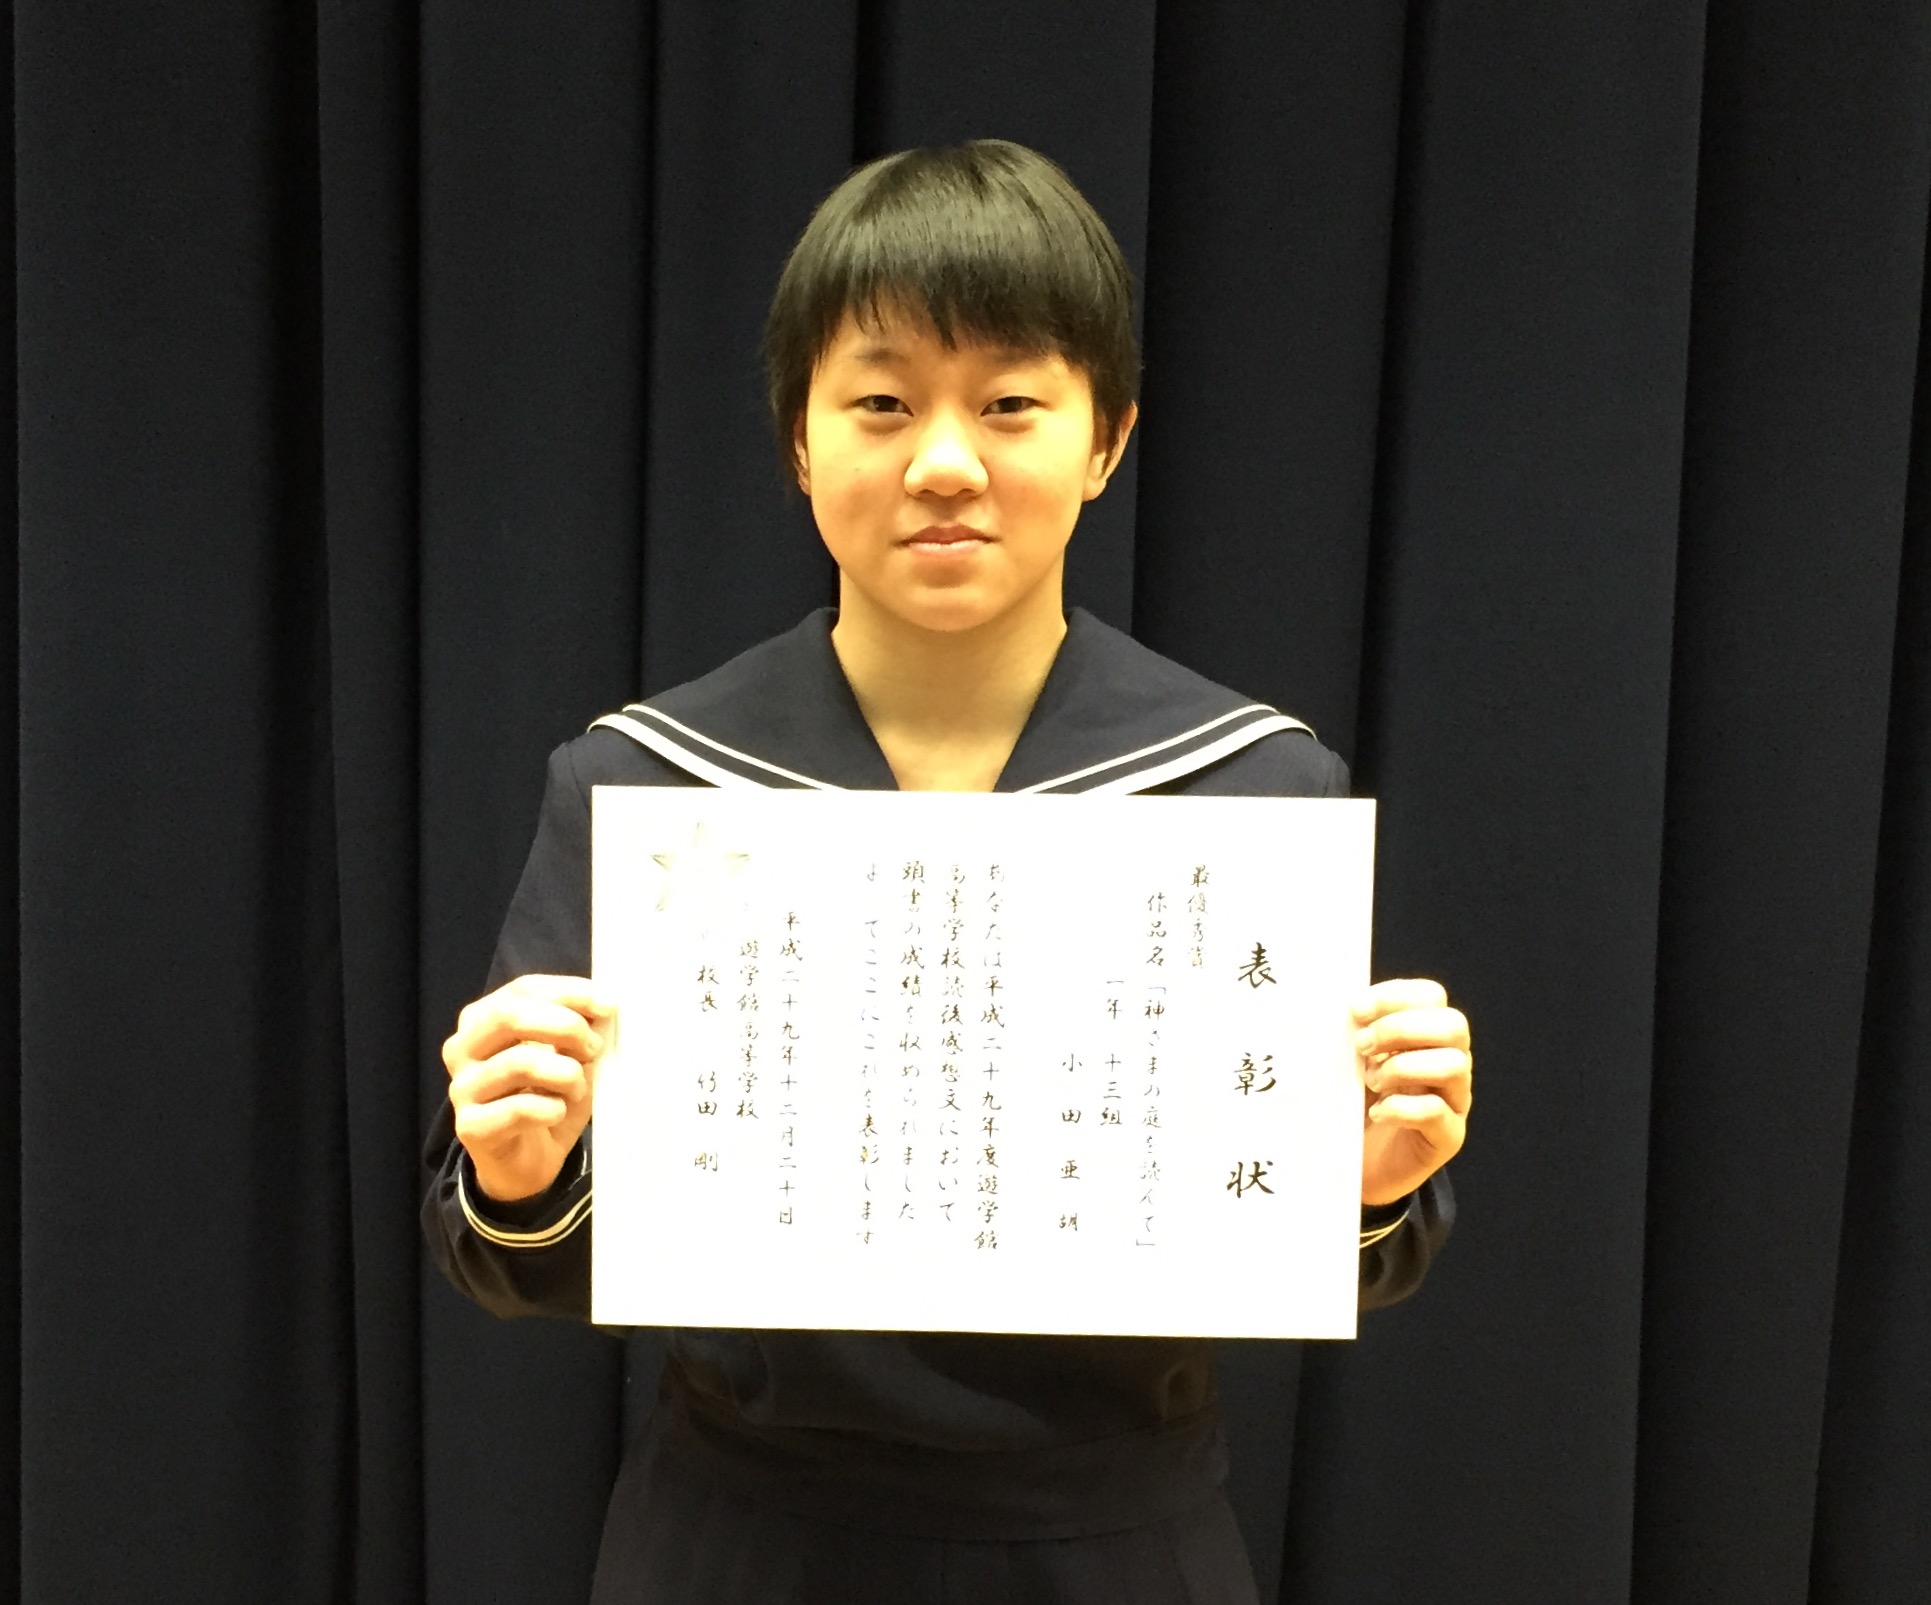 表彰状
最優秀賞
作品名「神さまの庭を読んて」
一年 十三組
小田亜胡
あなたは平成二十九年度遊学館
高等学校読後感想文において
頭書の成績を収められました
よってここにこれを表彰します
平成二十九年十二月二十日
遊学館高等学校
校長 竹田 剛